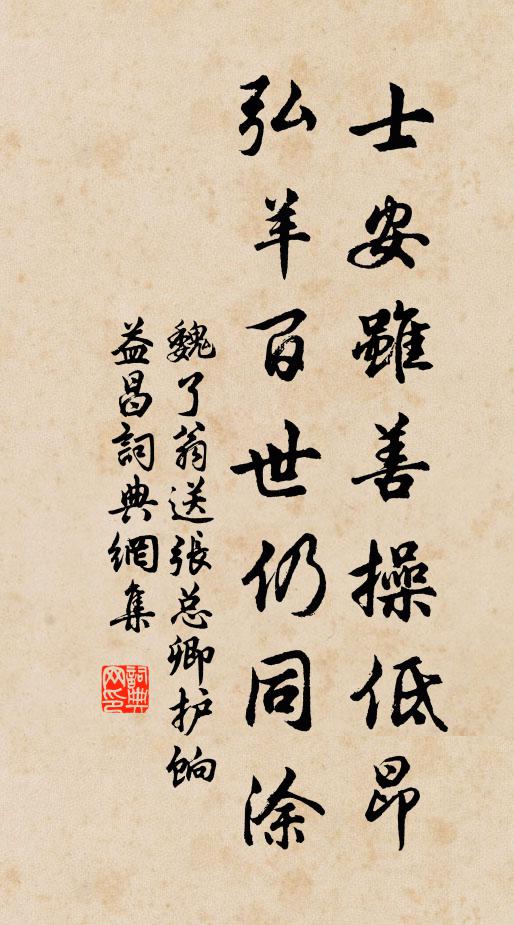 士安雖善操低昂
弘羊百世仍同涂
魏了翁送張总卿护餉
益昌詞典網集
詞典网印